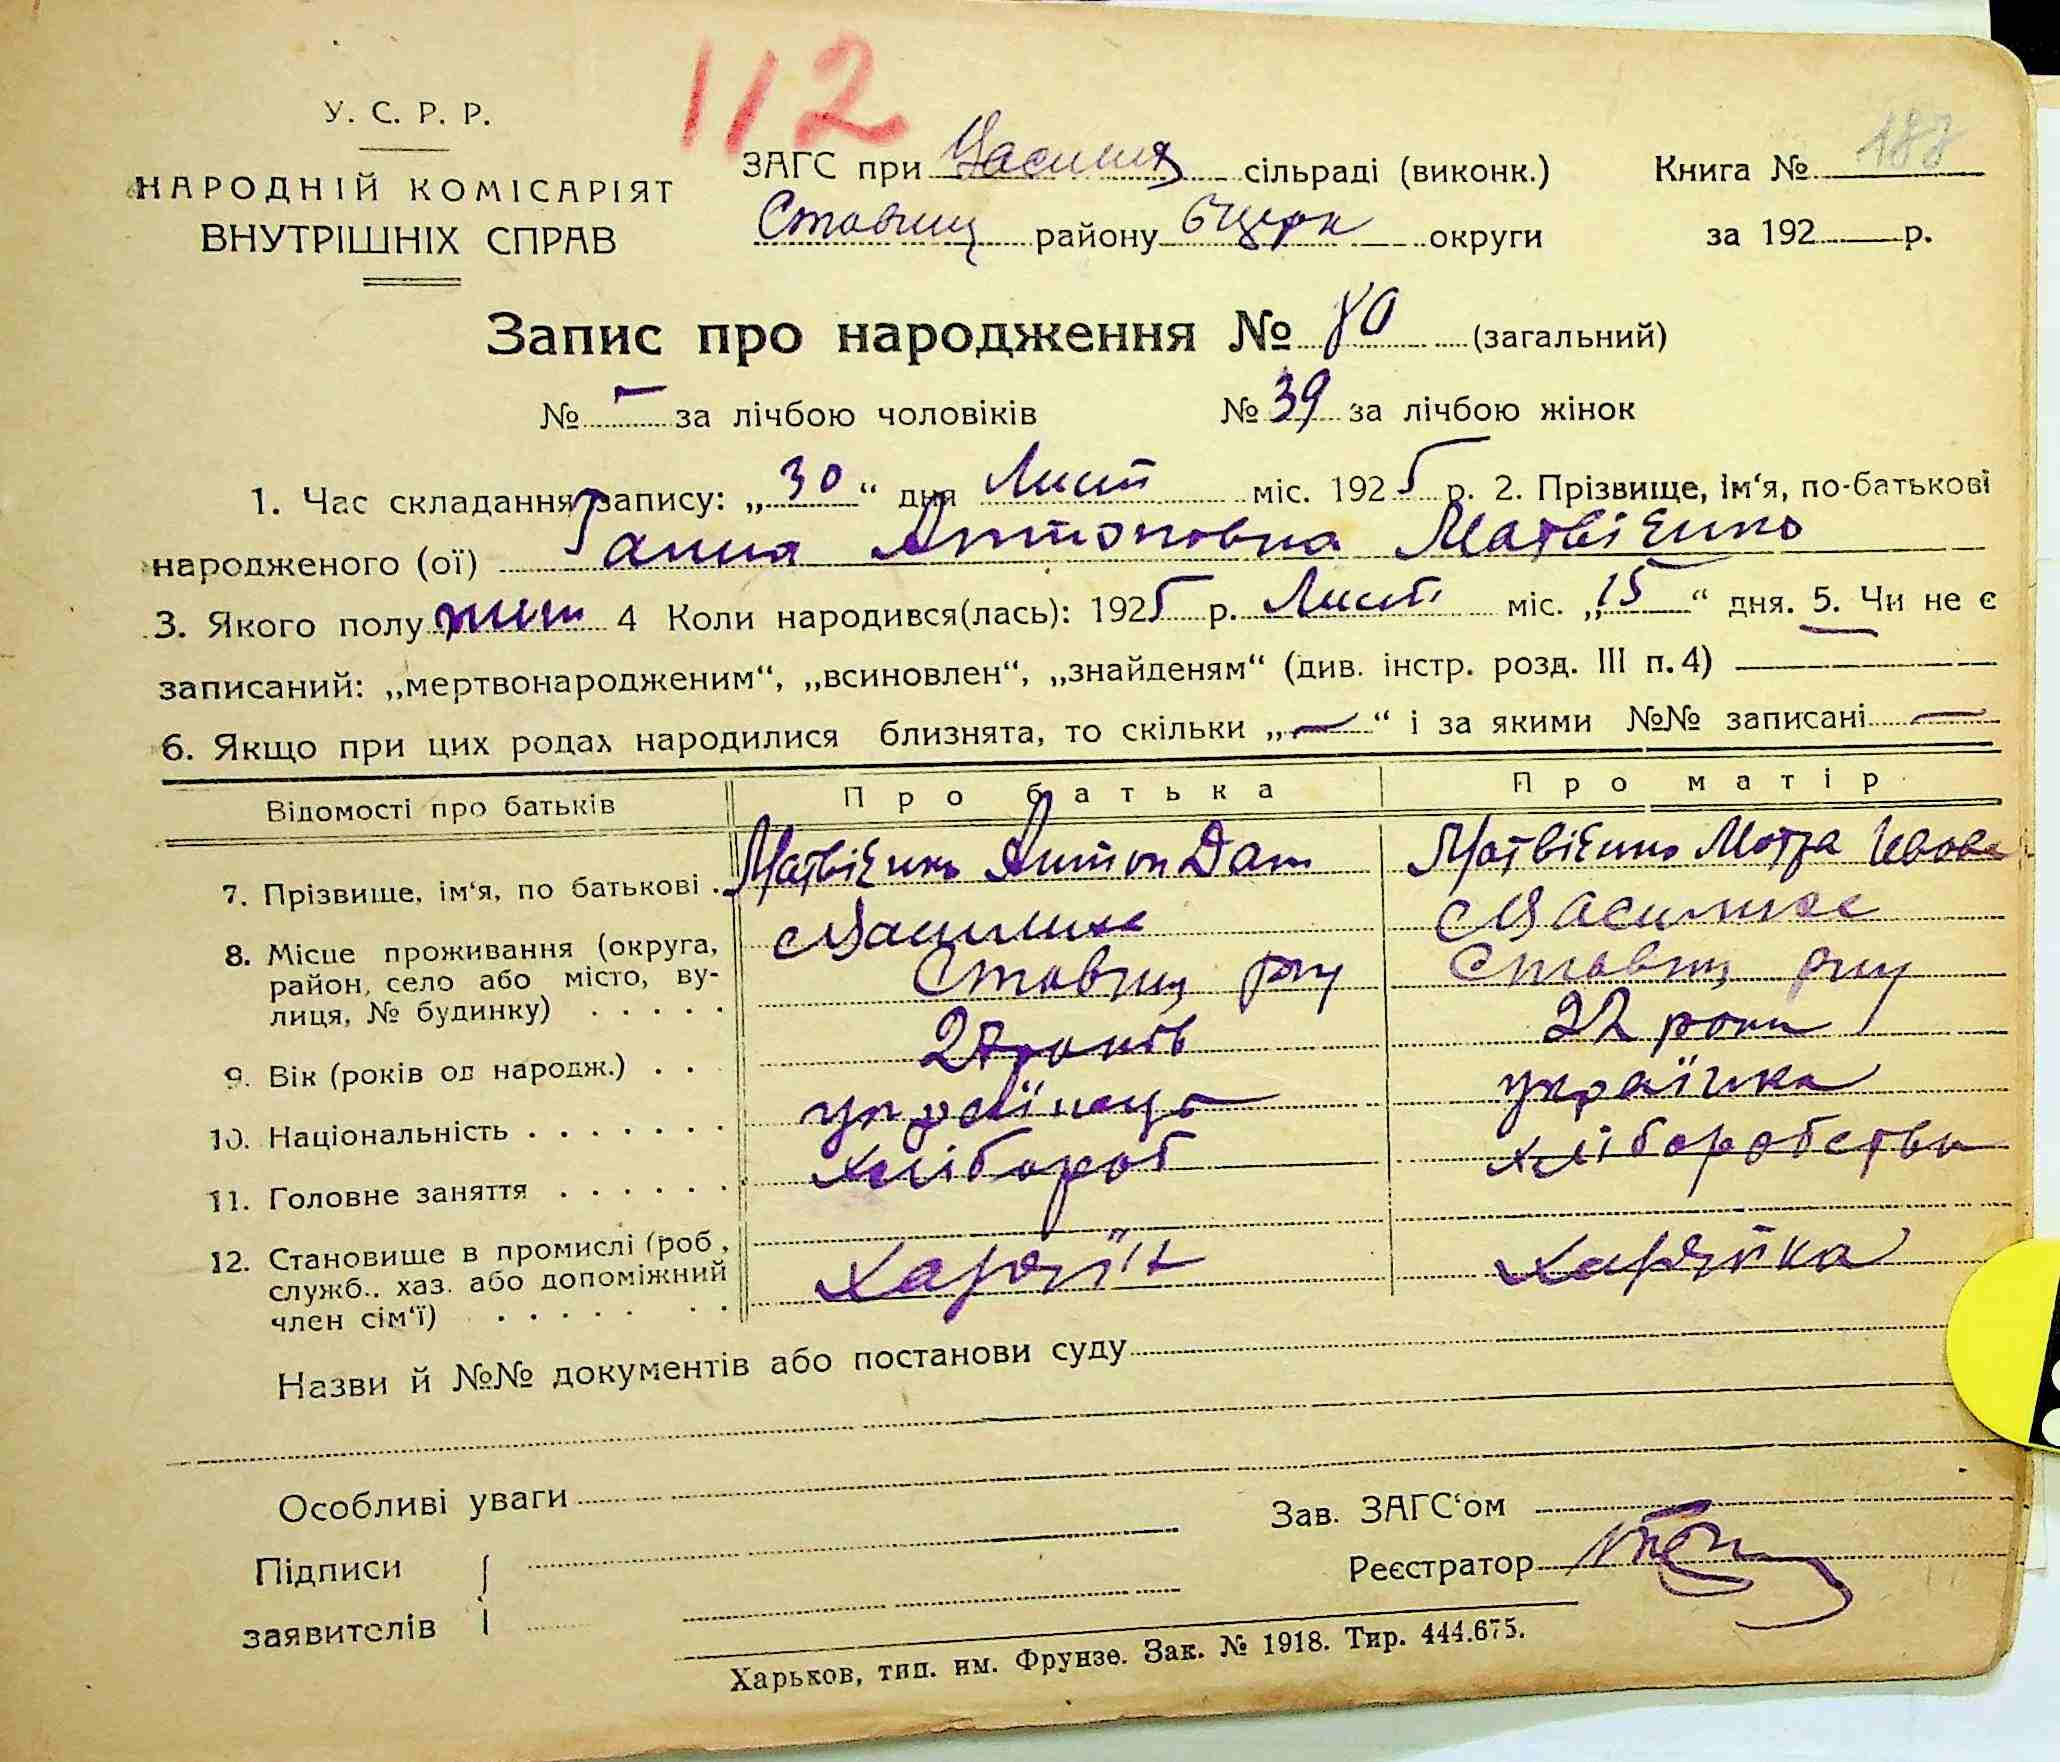 112
У. С. Р. Р.
НАРОДНІЙ КОМІСАРІЯТ
ВНУТРІШНІХ СПРАВ
ЗАГС при сільраді (виконк.)
Книга № 187
Ставищ району БЦерк округи
за 192 р.
Запис про народження № 80 (загальний)
№ — за лічбою чоловіків № 39 за лічбою жінок
1. Час складання запису: „30“ дня Лист міс. 1925 р. 2. Прізвище, ім‘я, по-батькові
народженого (ої) Ганна Антоновна Матвієнко
3. Якого полу жін 4 Коли народився(лась): 1925 р. Лист. міс. „15“ дня. 5. Чи не є
записаний: „мертвонародженим“, „всиновлен“, „знайденям“ (див. інстр. розд. III п. 4) —
6. Якщо при цих родах народилися близнята, то скільки „—“ і за якими №№ записані —
Відомості про батьків Про батька Про матір
7. Прізвище, ім‘я, по батькові . Матвієнко Антон Дан Матвієнко Мотра
8. Місце проживання (округа,
район, село або місто, ву-
лиця, № будинку) . . . . .
Ставищ рну Ставищ рну
9. Вік (років од народж.) . . . 27 років 22 роки
10. Національність . . . . . . . українець українка
11. Головне заняття . . . . . . хлібороб хліборобство
12. Становище в промислі (роб.,
служб., хаз. або допоміжний
член сім‘ї) . . . . . . .
Назви й №№ документів або постанови суду
Особливі уваги
Зав. ЗАГС‘ом
Підписи
заявителів
Реєстратор
Харьков, тип. им. Фрунзе. Зак. № 1918. Тир. 444.675.